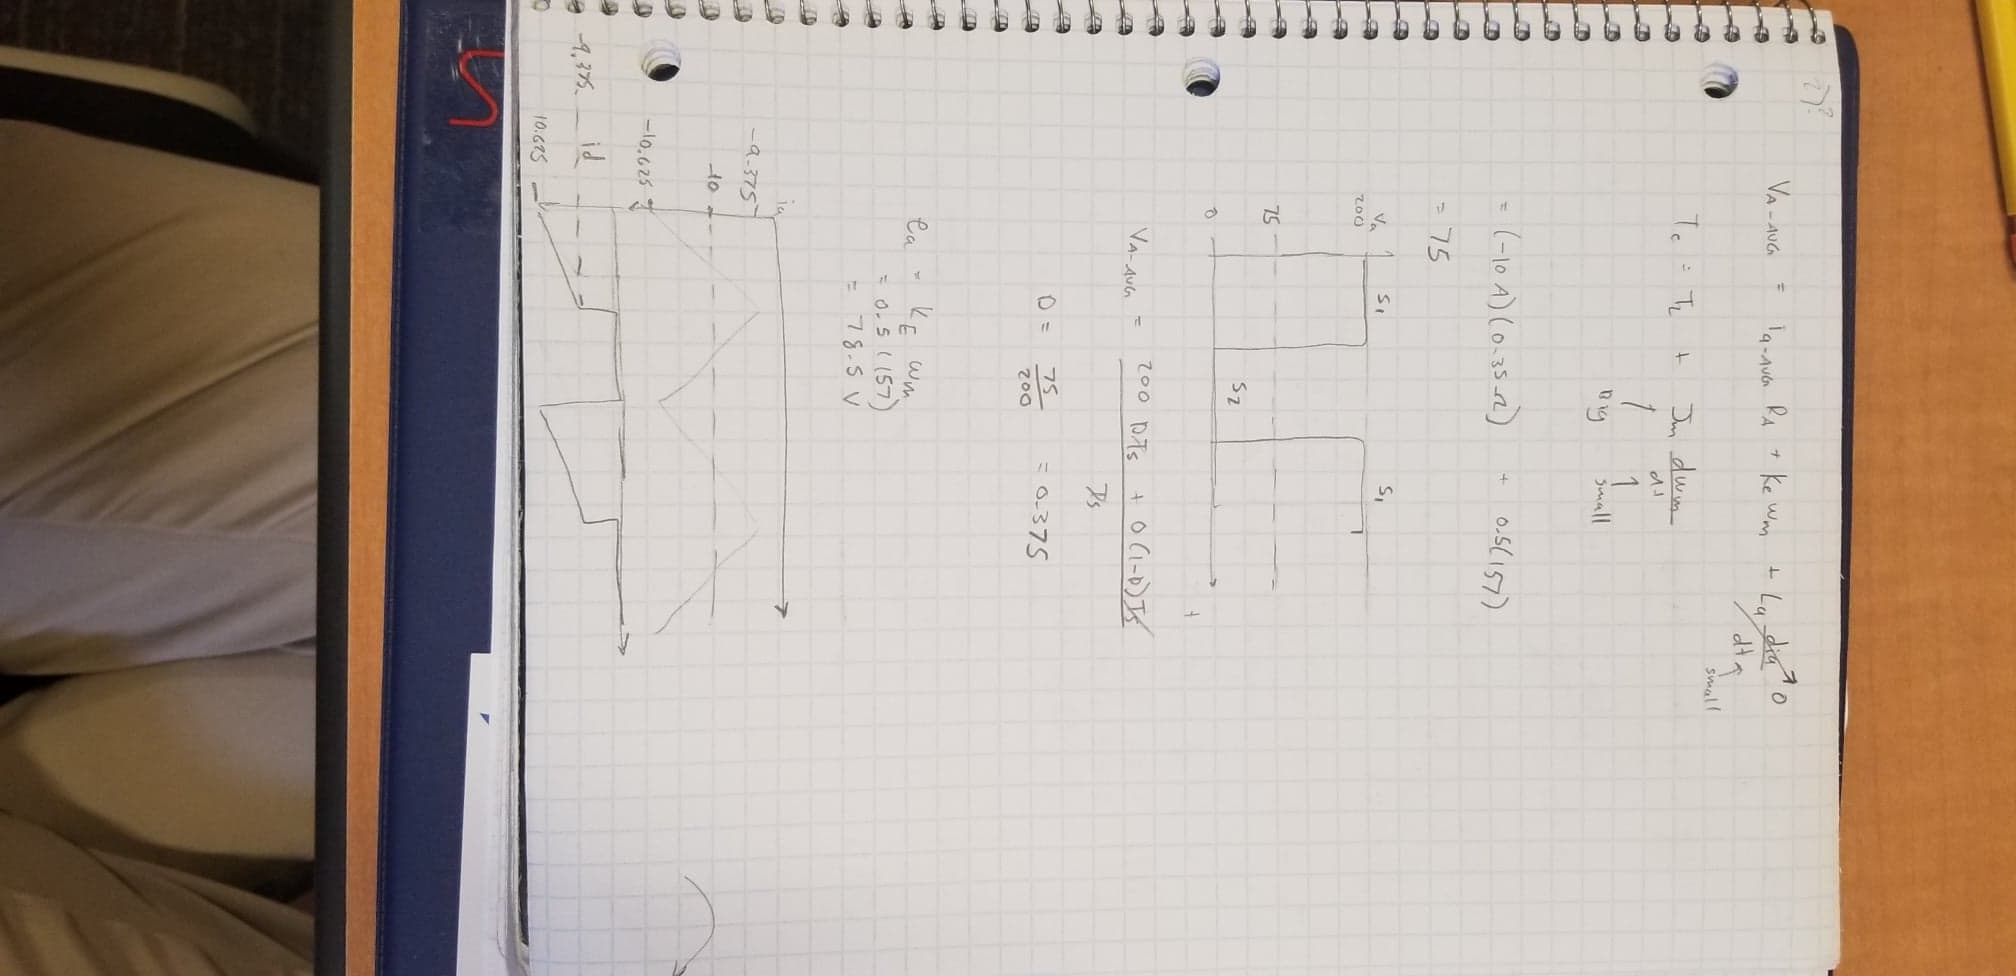 2)?
VA-AVG = ia-AVG RA + Ke wm + La dia/dt → 0
small
Te = TL + Jm dwm/dt
↑ ↑
Big small
= (-10 A)(0.35Ω) + 0.5(157)
= 75
Va S1 S1
200
75
S2
0
t
VA-AVG = 200 DTs + 0(1-D)Ts
Ts
D = 75/200 = 0.375
ea = KE wm
= 0.5(157)
= 78.5 V
ia
-9.375
-10
-10.625
-9.375 id
10.625